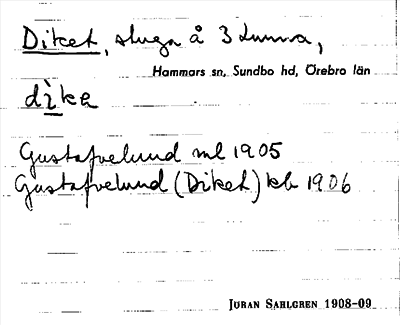 Diket, stuga å 3 tunna,
Hammars sn, Sundbo hd, Örebro län
dìke
Gustafvelund ml 1905
Gustafvelund (Diket) kb 1906
JÖRAN SAHLGREN 1908-09